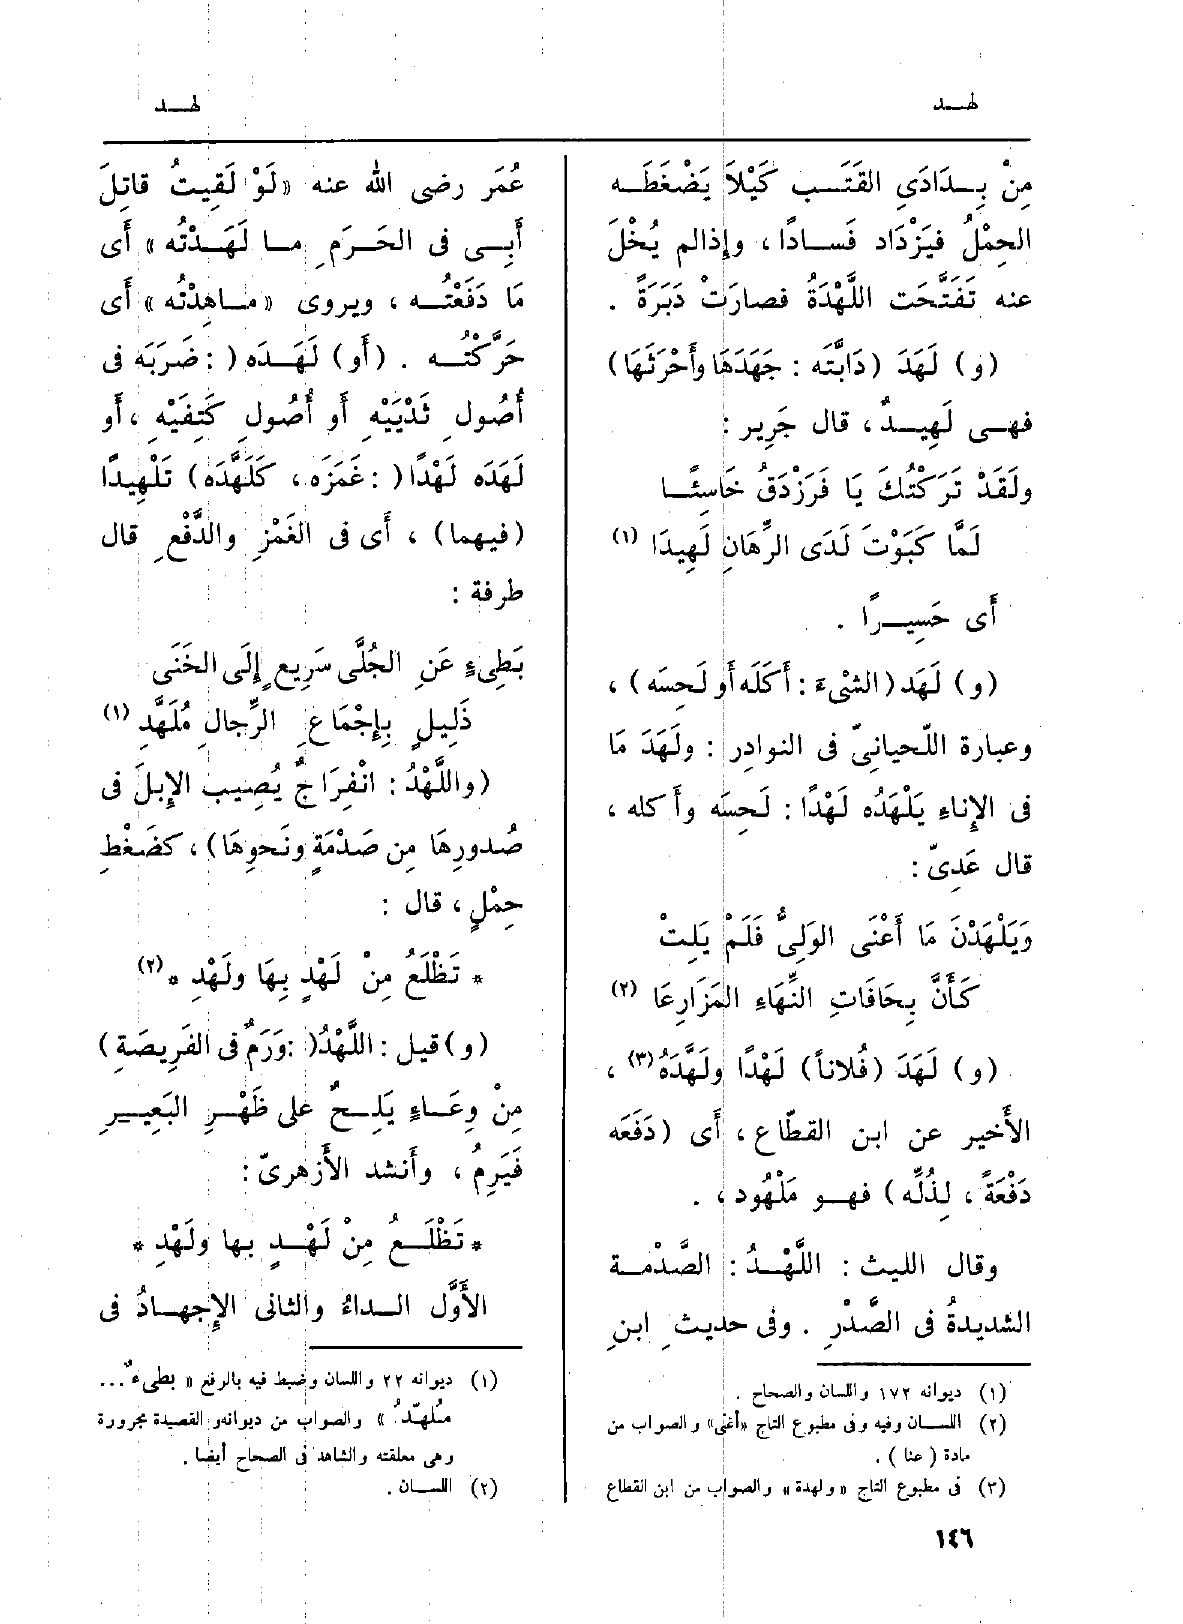 لهـد
لهـد
مِنْ بِـدَادَيِ القَتَـب كَيْلَا يَضْغَطَـه
الحِمْلُ فيَزْدَاد فَسـادًا ، وإذالم يُخْلَ
عنه تَفَتَّحَت اللَّهْدَةُ فصارَتْ دَبَرَةً .
(و) لَهَدَ (دَابَّتَه : جَهَدَهَا وأَحْرَثَهَا)
فهـى لَهِيـدٌ ، قال جَرِير :
ولَقَدْ تَرَكْتُكَ يَا فَرَزْدَقُ خَاسِئًـا
لَمَّا كَبَوْتَ لَدَى الرِّهَانِ لَهِيدَا (١)
أَى حَسِيـرًا .
(و) لَهَد (الشىْءَ : أَكَلَه أَو لَحِسَه) ،
وعبارة اللّحيانىّ فى النوادِر : ولَهَدَ مَا
فى الإِناءِ يَلْهَدُه لَهْدًا : لَحِسَه وأَكله ،
قال عَدِىّ :
وَيَلْهَدْنَ مَا أَغْنَى الوَلِىُّ فَلَمْ يَلِثْ
كَأَنَّ بِحَافَاتِ النِّهَاءِ المَزَارِعَا (٢)
(و) لَهَدَ (فُلاناً) لَهْدًا ولَهَّدَهُ (٣) ،
الأَخير عن ابن القطّاع ، أَى (دَفَعَه
دَفْعَةً ، لِذُلِّه) فهـو مَلْهُود ، .
وقال الليث : اللَّهْـدُ : الصَّدْمـة
الشديدةُ فى الصَّدْرِ . وفى حديثِ ابنِ
(١) ديوانه ١٧٢ واللسان والصحاح .
(٢) اللسـان وفيه وفى مطبوع التاج «أغنى» والصواب من
مادة ( عثا ) .
(٣) فى مطبوع التاج «ولهدة» والصواب من ابن القطاع
عُمَر رضى الله عنه «لَوْ لَقِيتُ قاتِلَ
أَبِـى فى الحَـرَمِ مـا لَهَـدْتُه » أَى
مَا دَفَعْتُـه ، ويروى «مـاهِدْتُه» أَى
حَرَّكْتُـه . (أَو) لَهَـدَه (: ضَرَبَه فى
أُصُولِ ثَدْيَيْهِ أَو أُصُولِ كَتِفَيْهِ ، أَو
لَهَدَه لَهْدًا( : غَمَزَه ، كَلَهَّدَه) تَلْهِيدًا
(فيهما) ، أَى فى الغَمْزِ والدَّفْعِ قال
طرفة :
بَطِىءٍ عَنِ الجُلَّى سَرِيعٍ إِلَى الخَنَى
ذَلِيلٍ بِإِجْمَاعِ الرِّجالِ مُلَهَّدِ (١)
(واللَّهْدُ : انْفِرَاجٌ يُصِيب الإِبِلَ فى
صُدورِهَا مِن صَدْمَةٍ ونَحوِهَا) ، كضَغْطِ
حِمْلٍ ، قال :
* تَظْلَعُ مِنْ لَهْدٍ بِهَا ولَهْدِ * (٢)
(و) قيل : اللَّهْدُ( : وَرَمٌ فى الفَرِيصَةِ)
مِنْ وِعَـاءٍ يَلِـحُّ على ظَهْـرِ البَعِيـرِ
فَيَرِمُ ، وأَنشد الأَزهرىّ :
* تَظْلَـعُ مِنْ لَهْـدٍ بها ولَهْدِ *
الأَوَّل الـداءُ والثانى الإِجهـادُ فى
(١) ديوانه ٢٢ واللسان وضبط فيه بالرفع « بطىءٌ ...
مُلهّدُ » والصواب من ديوانه والقصيدة مجرورة
وهى معلقته والشاهد فى الصحاح أيضا .
(٢) اللسـان .
١٤٦